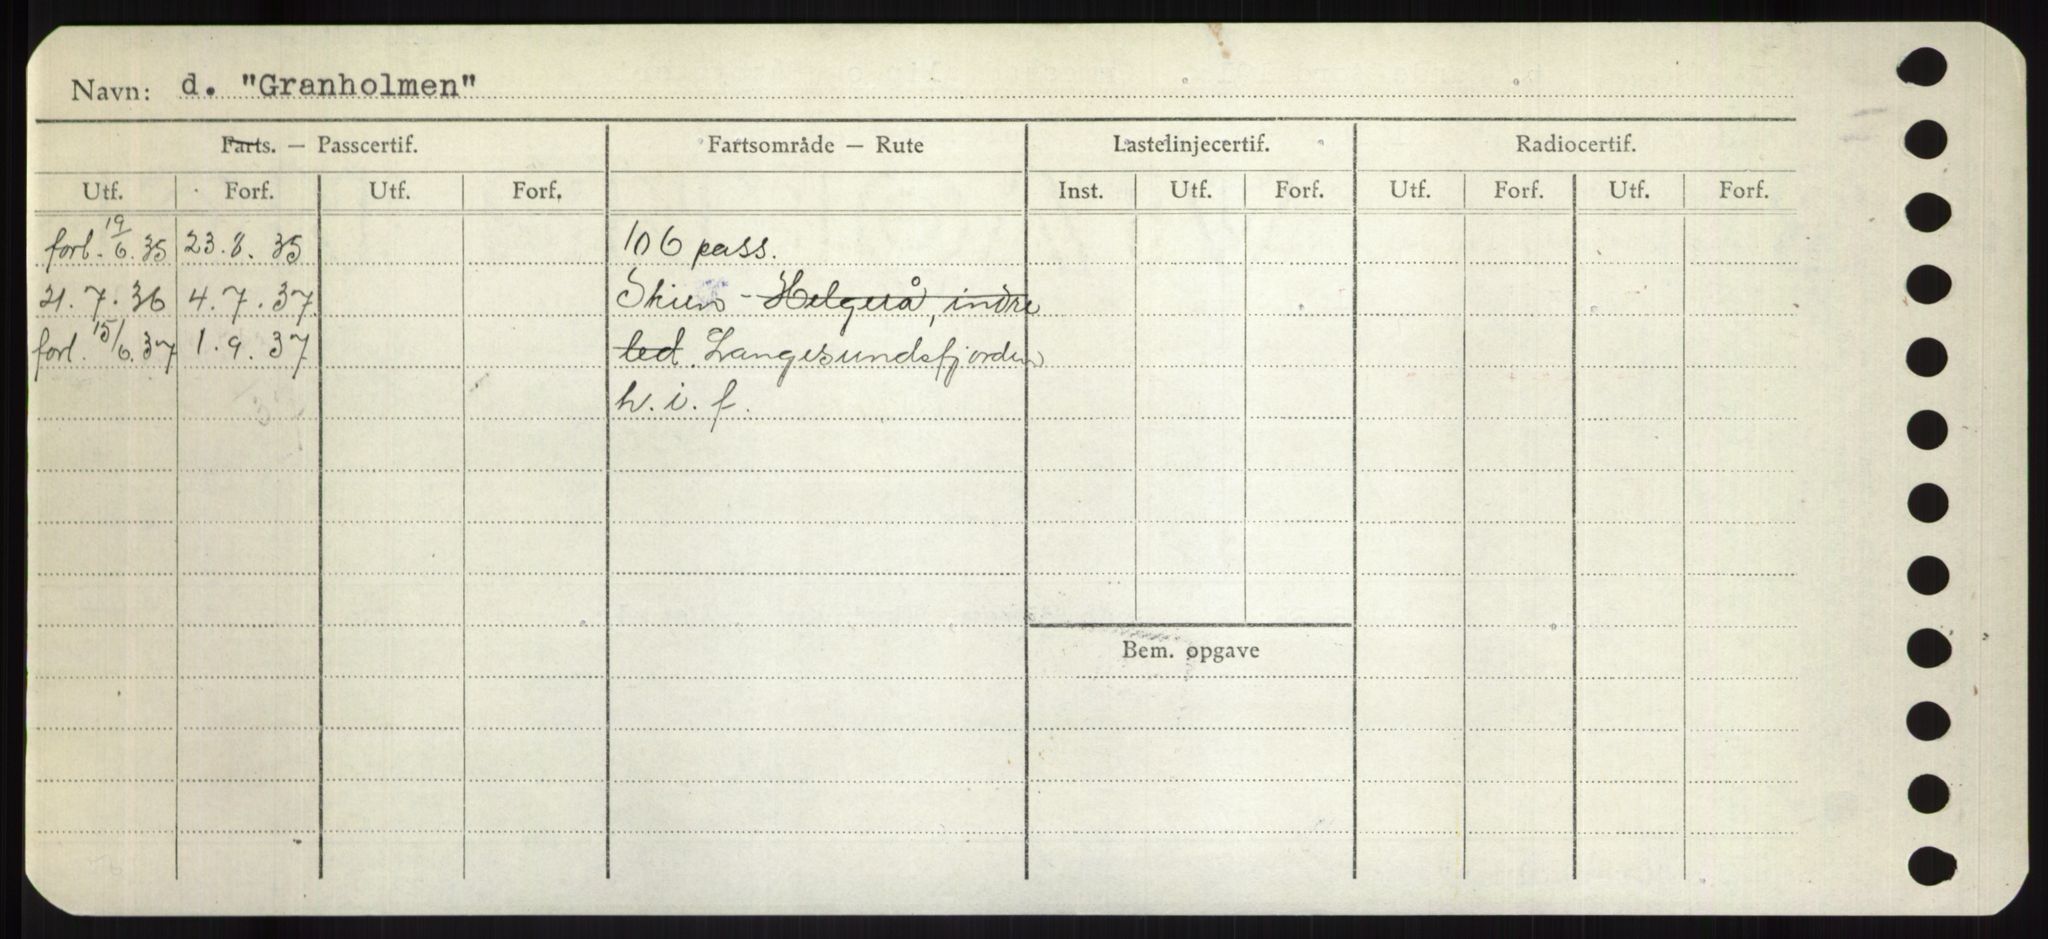 Navn: d. "Granholmen"
Farts. — Passcertif. Fartsområde — Rute Lastelinjecertif. Radiocertif.
Utf. Forf. Utf. Forf. Inst. Utf. Forf. Utf. Forf. Utf. Forf.
forl. 19/6.35 23.8.35 106 pass.
21.7.36 4.7.37 Skien - Helgerå, indre
forl. 15/6.37 1.9.37 led. Langesundsfjorden
h.i.f.
Bem. opgave